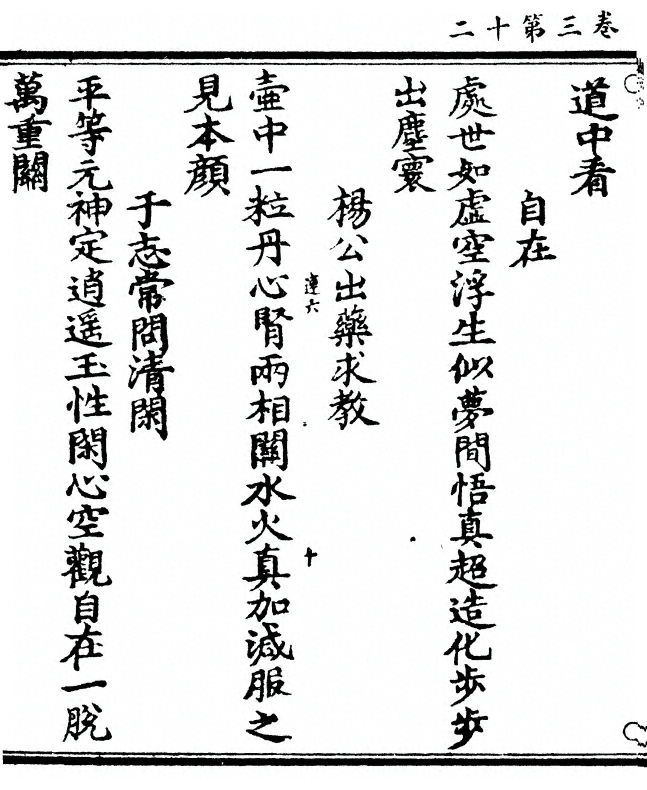 卷三第十二
道中看
自在
處世如虛空浮生似夢間悟真超造化步步
出塵寰
楊公出藥求教
壼中一粒丹心腎兩相關水火真加減服之
見本顏
于志常問清閑
平等元神定逍遥玉性閑心空觀自在一脫
萬重關
連六
十